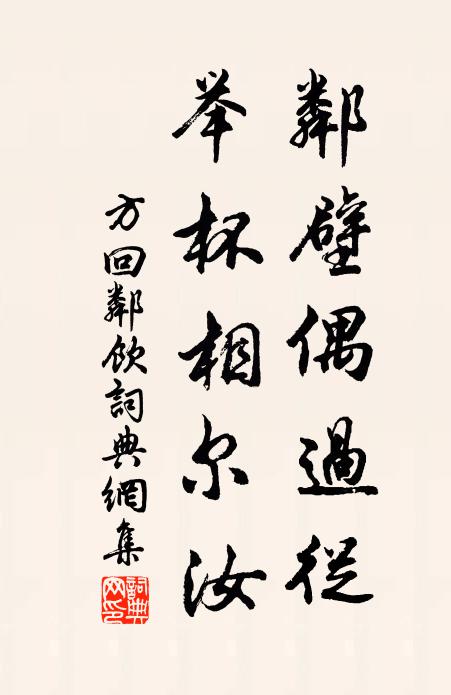 鄰壁偶過從
举杯相尔汝
方回鄰飲詞典網集
詞典網印